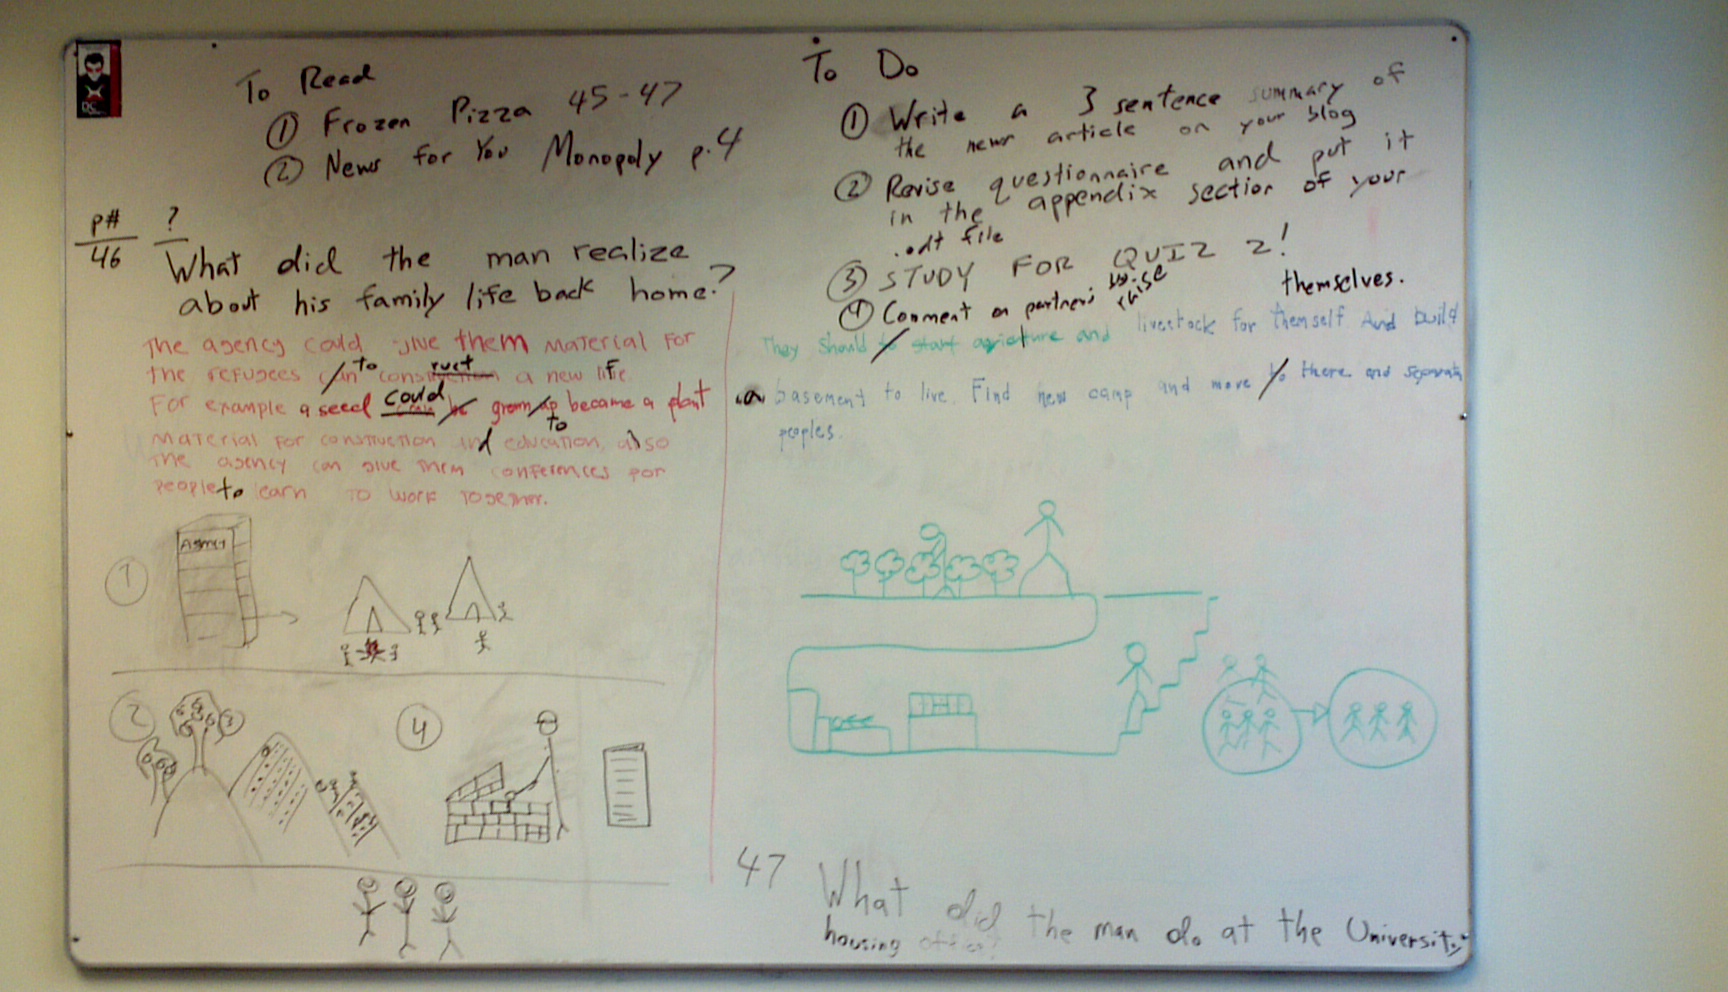 To Read
① Frozen Pizza 45-47
② News for You Monopoly p.4
p# ?
46 What did the man realize
about his family life back home?
The agency could give them material for
the refugees to construct a new life
For example a seed could grow became a plant
material for construction and education, also
the agency can give them conferences for
people to learn to work together.
Agency
①
②
③
④
To Do
① Write a 3 sentence summary of
the news article on your blog
② Revise questionnaire and put it
in the appendix section of your
.odt file
③ STUDY FOR QUIZ 2!
④ Comment on partners
raise
themselves.
They should start and livestock for themself And build
a basement to live. Find new camp and move to there and separate
peoples.
47 What did the man do at the University
housing office?